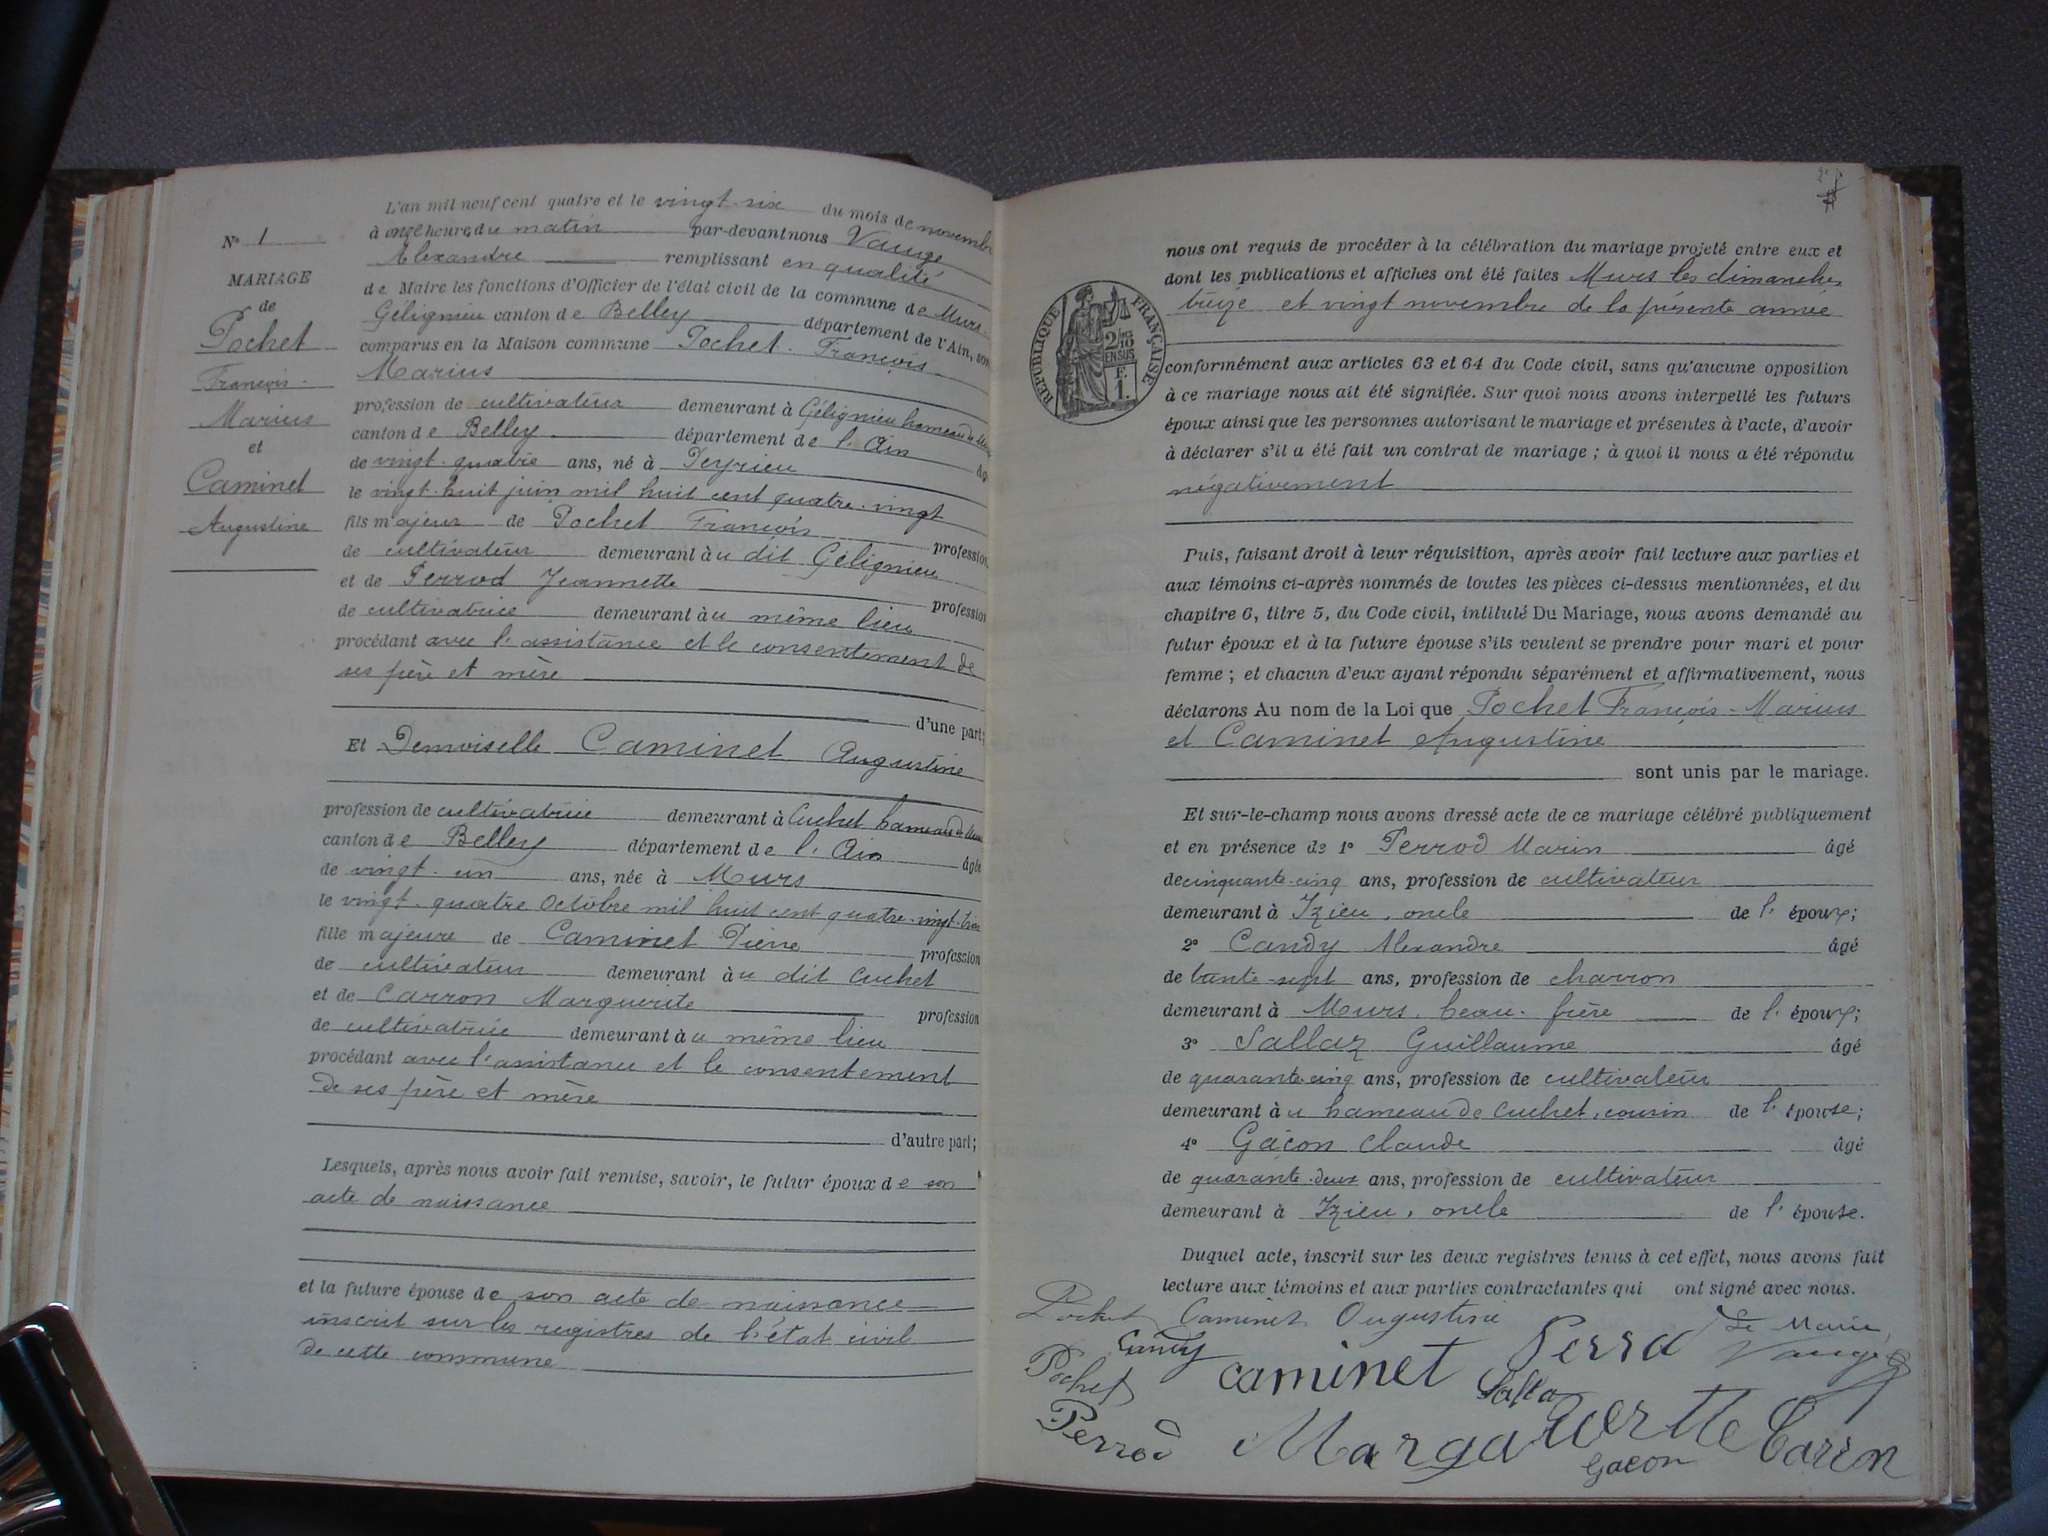 N° 1
MARIAGE
de
Pochet
François
Marius
et
Caminet
Augustine
L'an mil neuf cent quatre et le vingt-six du mois de novembre
à onze heures du matin par-devant nous Vauge
Alexandre remplissant en qualité
de Maire les fonctions d'Officier de l'état civil de la commune de Murs-
Gélignieu canton de Belley département de l'Ain, sont
comparus en la Maison commune Pochet François-
Marius
profession de cultivateur demeurant à Gélignieu hameau de Murs
canton de Belley département de l'Ain âgé
de vingt-quatre ans, né à Peyrieu
le vingt-huit juin mil huit cent quatre-vingt
fils majeur de Pochet François profession
de cultivateur demeurant au dit Gélignieu
et de Perrod Jeannette profession
de cultivatrice demeurant au même lieu
procédant avec l'assistance et le consentement de
ses père et mère
d'une part;
Et Demoiselle Caminet Augustine
profession de cultivatrice demeurant à Cuchet hameau de Murs
canton de Belley département de l'Ain âgée
de vingt-un ans, née à Murs
le vingt-quatre Octobre mil huit cent quatre-vingt-trois
fille majeure de Caminet Pierre profession
de cultivateur demeurant au dit Cuchet
et de Carron Marguerite profession
de cultivatrice demeurant au même lieu
procédant avec l'assistance et le consentement
de ses père et mère
d'autre part;
Lesquels, après nous avoir fait remise, savoir, le futur époux de son
acte de naissance
et la future épouse de son acte de naissance
inscrit sur les registres de l'état civil
de cette commune
RÉPUBLIQUE FRANÇAISE
2/10
EN SUS
F.
1.
nous ont requis de procéder à la célébration du mariage projeté entre eux et
dont les publications et affiches ont été faites Murs les dimanches
treize et vingt novembre de la présente année
conformément aux articles 63 et 64 du Code civil, sans qu'aucune opposition
à ce mariage nous ait été signifiée. Sur quoi nous avons interpellé les futurs
époux ainsi que les personnes autorisant le mariage et présentes à l'acte, d'avoir
à déclarer s'il a été fait un contrat de mariage; à quoi il nous a été répondu
négativement
Puis, faisant droit à leur réquisition, après avoir fait lecture aux parties et
aux témoins ci-après nommés de toutes les pièces ci-dessus mentionnées, et du
chapitre 6, titre 5, du Code civil, intitulé Du Mariage, nous avons demandé au
futur époux et à la future épouse s'ils veulent se prendre pour mari et pour
femme; et chacun d'eux ayant répondu séparément et affirmativement, nous
déclarons Au nom de la Loi que Pochet François-Marius
et Caminet Augustine
sont unis par le mariage.
Et sur-le-champ nous avons dressé acte de ce mariage célébré publiquement
et en présence de 1° Perrod Marin âgé
de cinquante-cinq ans, profession de cultivateur
demeurant à Izieu, oncle de l'époux;
2° Candy Alexandre âgé
de trente-sept ans, profession de charron
demeurant à Murs, beau-frère de l'époux;
3° Sallaz Guillaume âgé
de quarante-cinq ans, profession de cultivateur
demeurant au hameau de Cuchet, cousin de l'épouse;
4° Gacon Claude âgé
de quarante-deux ans, profession de cultivateur
demeurant à Izieu, oncle de l'épouse.
Duquel acte, inscrit sur les deux registres tenus à cet effet, nous avons fait
lecture aux témoins et aux parties contractantes qui ont signé avec nous.
Pochet Caminet Augustine
Le Maire,
Candy Perrod Vauge
Pochet caminet Salla
Perrod Marguerite Carron
Gacon